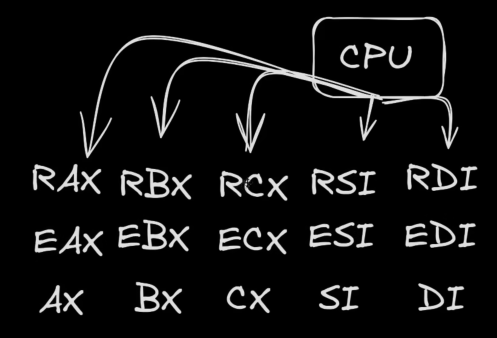 CPU
RAX RBX RCX RSI RDI
EAX EBX ECX ESI EDI
AX BX CX SI DI